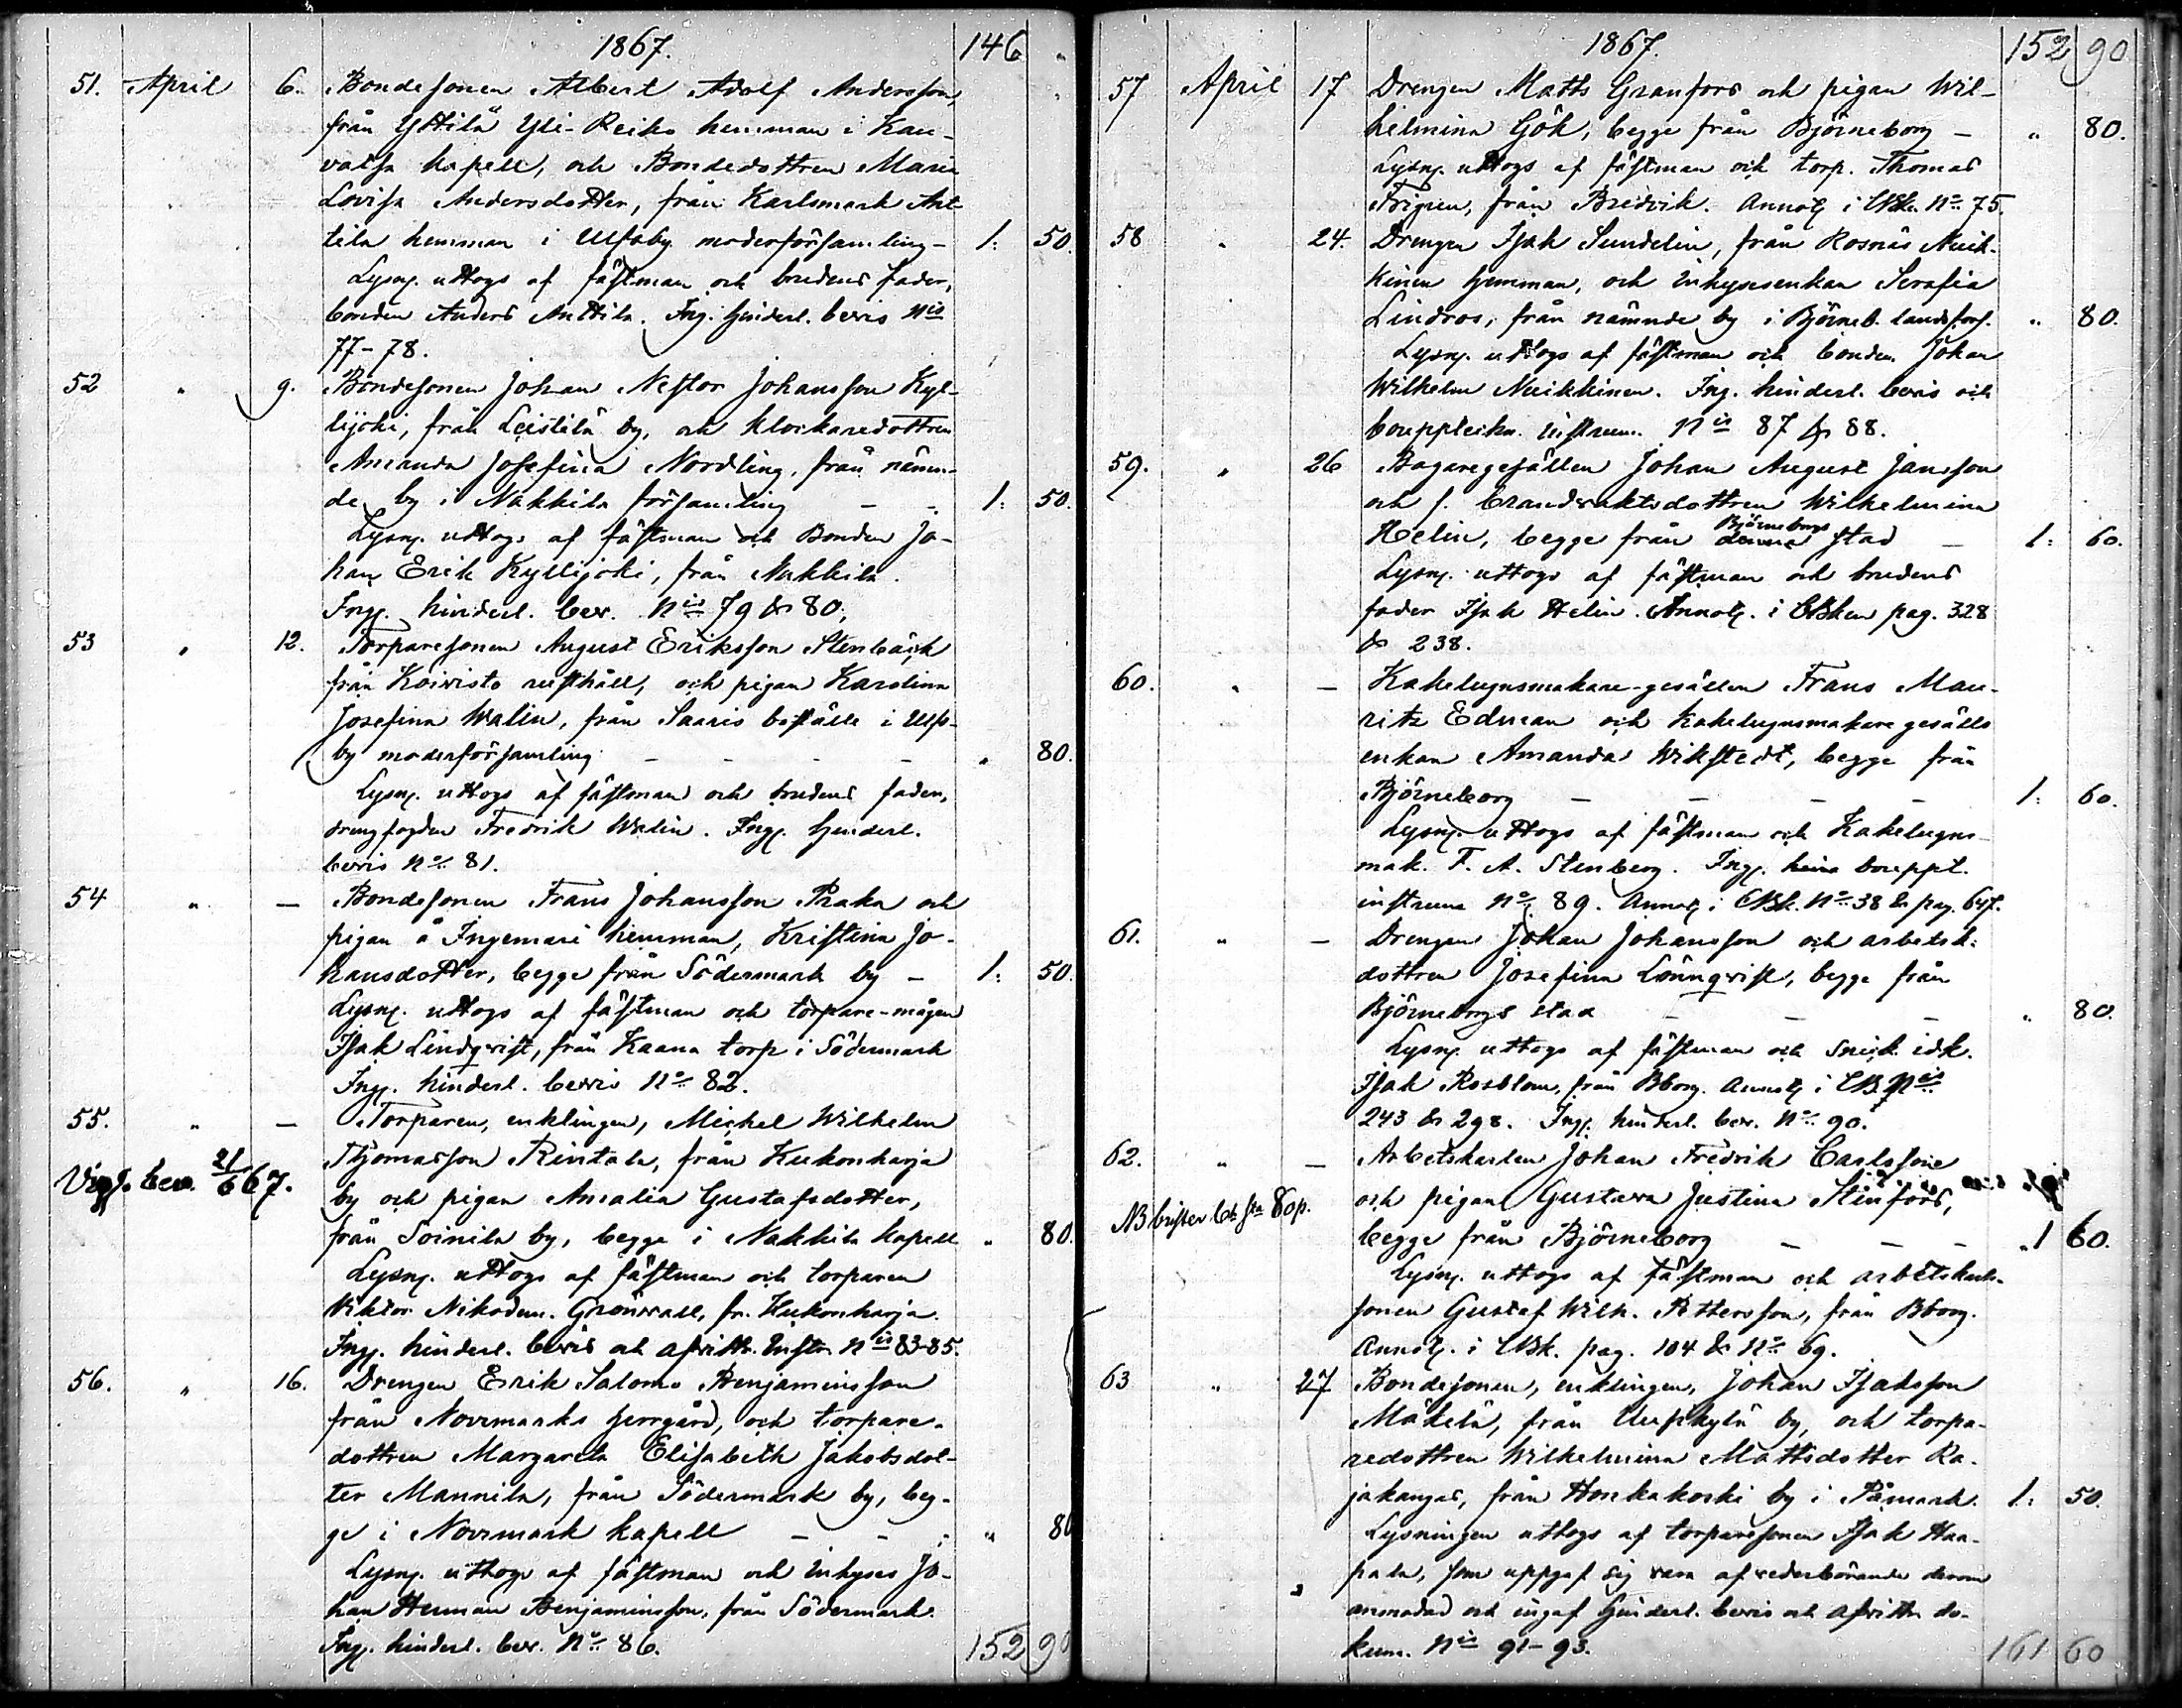 1867. 146 "
51. April 6. Bondesonen Albert Adolf Andersson,
från Yttilä Yli-Reiko hemman i Kau-
vatsa kapell, och Bondedottren Maria
Lovisa Andersdotter, från Karlsmark Ant-
tila hemman i Ulfsby moderförsamling - 1: 50.
Lysng. uttogs af fästman och brudens fader,
bonden Anders Anttila. Ing. hinderl. bevis Nis
77-78.
52 " 9. Bondesonen Johan Nestor Johansson Kyl-
lijoki, från Leistilä by, och klockaredottren
Amanda Josefina Nordling, från nämn-
de by i Nakkila församling - - 1: 50.
Lysng. uttogs af fästman och Bonden Jo-
han Erik Kyllijoki, från Nakkila.
Ingg. hinderl. bev. Nis 79 & 80.
53 " 12. Torparesonen August Eriksson Stenbäck
från Koivisto rusthåll, och pigan Karolina
Josefina Walin, från Saaris boställe i Ulfs-
by moderförsamling - - - - " 80.
Lysng. uttogs af fästman och brudens fader,
drengfogden Fredrik Walin. Ingg. hinderl.
bevis No 81.
54 " — Bondesonen Frans Johansson Praka och
pigan å Ingemari hemman, Kristina Jo-
hansdotter, begge från Södermark by - 1: 50.
Lysng. uttogs af fästman och torpare-mågen
Isak Lindqvist, från Kaana torp i Södermark
Ingg. hinderl. bevis No 82.
55. " — Torparen, enklingen, Michel Wilhelm
Vigs. bev. 21/6 67. Thomasson Rintala, från Kukonharja
by och pigan Amalia Gustafsdotter,
från Soinila by, begge i Nakkila kapell " 80.
Lysng. uttogs af fästman och torparen
Viktor Nikodem. Grönvall, fr. Kukonharja.
Ingg. hinderl. bevis och afvittr. Instr. Nis 83-85.
56. " 16. Drengen Erik Salomo Benjaminsson
från Norrmarks herrgård, och torpare-
dottren Margareta Elisabeth Jakobsdot-
ter Mannila, från Södermark by, beg-
ge i Norrmark kapell - - - " 80
Lysng. uttogs af fästman och inhyses Jo-
han Herman Benjaminsson, från Södermark.
Ingg. hinderl. bev. No 86. 152 90
1867. 152 90
57 April 17 Drengen Matts Granfors och pigan Wil-
helmina Gök, begge från Björneborg - " 80.
Lysng. uttogs af fästman och torp. Thomas
Frigren, från Bredvik. Annotg i KBk. No 75.
58 " 24. Drengen Isak Sundelin, från Rosnäs Nuik-
kinen hemman, och inhysesenkan Serafia
Lindros, från nämnde by i Björneb. landsförs. " 80.
Lysng. uttogs af fästman och bonden Johan
Wilhelm Nuikkinen. Ing. hinderl. bevis och
bouppteckn. instrum. Nis 87 & 88.
59. " 26 Bagaregesällen Johan August Jansson
och f. brandvaktsdottren Wilhelmina
Björneborgs
Helin, begge från denna stad - 1: 60.
Lysng. uttogs af fästman och brudens
fader Isak Helin. Annotg. i KBken pag. 328
& 238.
60. " — Kakelugnsmakare-gesällen Frans Mau-
ritz Edman och kakelugnsmakare gesälls
enkan Amanda Wikstedt, begge från
Björneborg - - - - 1: 60.
Lysng. uttogs af fästman och Kakelugns-
mak. F. A. Stenberg. Ingg. bouppt.
instrum No 89. Annotg i KBk. No 38 & pag. 647.
61. " — Drengen Johan Johansson och arbetsk:
dottren Josefina Lönnqvist, begge från
Björneborgs stad - - - " 80.
Lysng. uttogs af fästman och snick. idk.
Isak Rosblom, från Bborg. Annotg i KB. Nis
243 & 298. Ingg. hinderl. bev. No 90.
62. " — Arbetskarlen Johan Fredrik Carlsson
och pigan Gustava Justina Stenfors,
NB brister 80p. begge från Björneborg - - - "1 60.
Lysng. uttogs af fästman och arbetskarls-
sonen Gustaf Wilh. Pettersson, från Bborg.
Annotg. i KBk. pag. 104 & No 69.
63 " 27 Bondesonen, enklingen, Johan Isaksson
Mäkelä, från Uusikylä by, och torpa-
redottren Wilhelmina Mattsdotter Ra-
jakangas, från Honkakoski by i Påmark. 1: 50.
Lysningen uttogs af torparesonen Isak Haa-
pala, som uppgaf sig vara af vederbörande derom
anmodad och ingaf hinderl. bevis och afvittr. do-
kum. Nis 91-93. 161 60